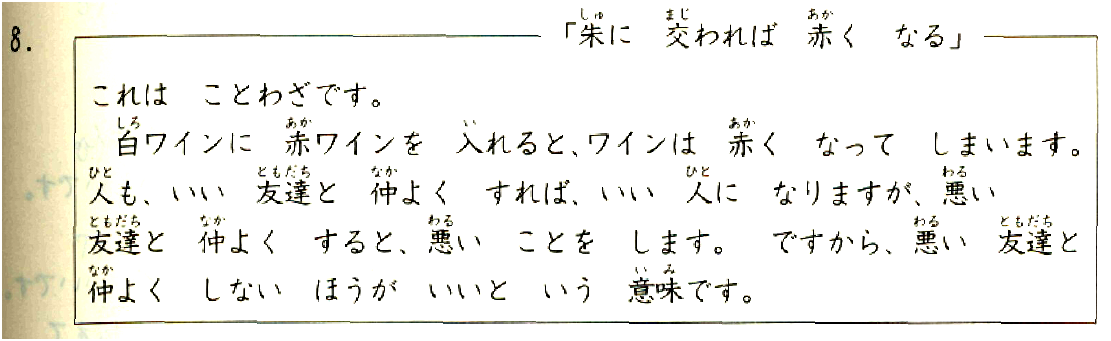 8.
「朱に 交われば 赤く なる」
これは ことわざです。
白ワインに 赤ワインを 入れると、ワインは 赤く なって しまいます。
人も、いい 友達と 仲よく すれば、いい 人に なりますが、悪い
友達と 仲よく すると、悪い ことを します。 ですから、悪い 友達と
仲よく しない ほうが いいと いう 意味です。